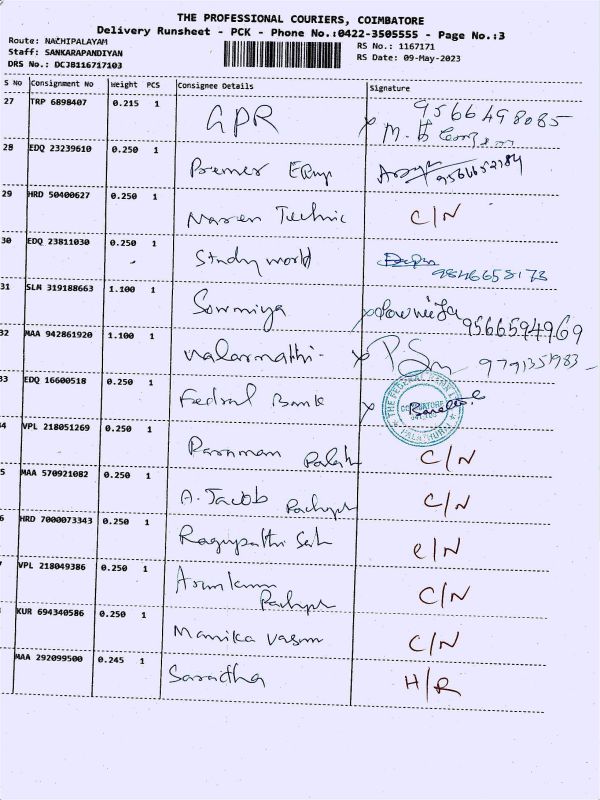 THE PROFESSIONAL COURIERS, COIMBATORE
Delivery Runsheet - PCK - Phone No.:0422-3505555 - Page No.:3
Route: NACHIPALAYAM
RS No.: 1167171
Staff: SANKARAPANDIYAN
RS Date: 09-May-2023
DRS No.: DCJB116717103
S No Consignment No Weight PCS Consignee Details Signature
27 TRP 6898407 0.215 1 GPR 9566498085
28 EDQ 23239610 0.250 1 Premer 9566652184
29 HRD 50400627 0.250 1 Naren Technic C/N
30 EDQ 23811030 0.250 1 Study world 9846658173
31 SLM 319188663 1.100 1 Sowmiya 9566594969
32 MAA 942861920 1.100 1 Valarmathi- 9791351983
33 EDQ 16600518 0.250 1 Fedral Bank THE FEDERAL BANK COIMBATORE
4 VPL 218051269 0.250 1 C/N
5 MAA 570921082 0.250 1 A. Jacob C/N
6 HRD 7000073343 0.250 1 Ragupathi C/N
7 VPL 218049386 0.250 1 Arunkumar C/N
KUR 694340586 0.250 1 Manika vasam C/N
MAA 292099500 0.245 1 Saradha H/R